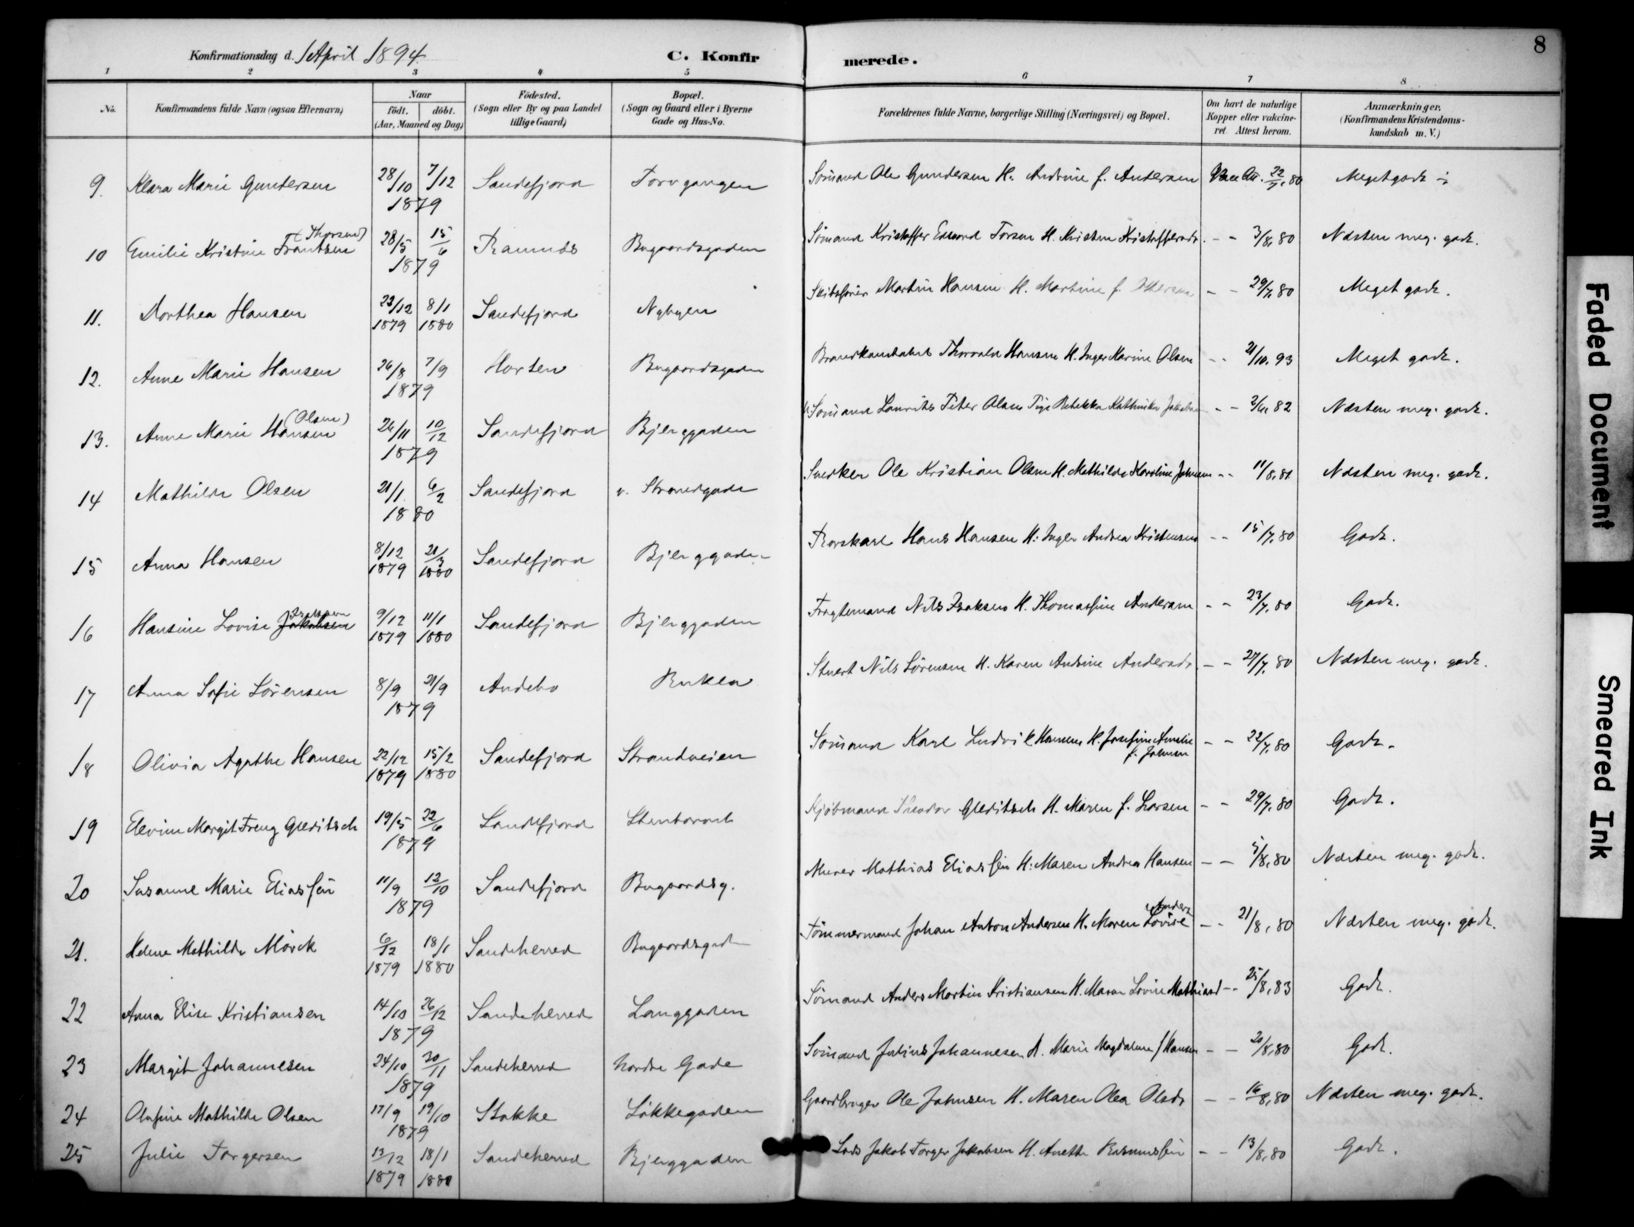 8
Konfirmationsdag d. 1 April 1894
C. Konfirmerede.
1 2 3 4 5 6 7 8
No. Konfirmandens fulde Navn (ogsaa Efternavn) Naar født. døbt. (Aar, Maaned og Dag) Fødested. (Sogn eller By og paa Landet tillige Gaard) Bopæl. (Sogn og Gaard eller i Byerne Gade og Hus-No. Forældrenes fulde Navne, borgerlige Stilling (Næringsvei) og Bopæl. Om havt de naturlige Kopper eller vaccineret. Attest herom. Anmærkninger. (Konfirmandens Kristendomskundskab m. V.)
9. Klara Marie Gundersen 28/10 7/12 1879 Sandefjord Torvgangen Sømand Ole Gundersen H. Andrine f. Andersen 22/7.80 Meget godt
10 Emilie Kristine Frantsen (Thorsen) 28/5 15/6 1879 Bugaardsgaden Sømand Kristoffer Torsen H. Kristine Kristoffersdr. - - 3/8.80 Næsten meg. godt.
11. Dorthea Hansen 23/12 1879 8/1 1880 Sandefjord Nybyen Skibsfører Martin Hansen H. Martine f. - - 29/7.80 Meget godt.
12. Anne Marie Hansen 26/8 7/9 1879 Horten Bugaardsgaden Brandkonstabel Thorvald Hansen H. Inger Karine Olsen - - 21/10.93 Meget godt.
13. Anne Marie Hansen (Olsen) 26/11 10/12 1879 Sandefjord Bjerggaden Sømand Laurits Peter Olsen Pige Rebekka Kathrine - - 82 Næsten meg. godt.
14 Mathilde Olsen 21/1 6/2 1880 Sandefjord v. Strandgade Snedker Ole Kristian Olsen H. Mathilde Karoline Johnsen - - 11/8.81 Næsten meg. godt.
15 Anna Hansen 8/12 1879 21/3 1880 Sandefjord Bjerggaden Hans Hansen H. Inger Andrea Kristensen - - 15/7.80 Godt.
16 Hansine Lovise Jakobsen Isaksen 9/12 1879 11/1 1880 Sandefjord Bjerggaden Fragtemand Nils Isaksen H. Thomassine Andersen - - 23/7.80 Godt.
17 Anna Sofie Sørensen 8/9 21/9 1879 Andebo Stuert Nils Sørensen H. Karen Andrine Andersdr. - - 27/7.80 Næsten meg. godt.
18 Olivia Agathe Hansen 22/12 1879 15/2 1880 Sandefjord Strandveien Sømand Karl Ludvik Hansen H. Josefine Amalie f. Johnsen - - 22/7.80 Godt.
19 Elevine Margit Freng Gleditsch 19/5 22/6 1879 Sandefjord Kjøbmand Theodor Gleditsch H. Maren f. Larsen - - 29/7.80 Godt.
20 Susanne Marie Eliassen 11/9 12/10 1879 Sandefjord Bugaardsg. Murer Mathias Eliassen H. Maren Andrea Hansen - - 5/8.80 Næsten meg. godt.
21. Helene Mathilde Mørck 6/12 1879 18/1 1880 Sandeherred Bugaardsgade Tømmermand Johan Anton Andersen H. Maren Lovise Anders - - 21/8.80 Næsten meg. godt.
22 Anna Elise Kristiansen 14/10 26/12 1879 Sandeherred Langgaden Sømand Anders Martin Kristiansen H. Maren Lovise Mathiasd - - 25/8.83 Godt.
23 Margit Johannesen 24/10 30/11 1879 Sandeherred Nordre Gade Sømand Julius Johannesen H. Marie Magdalene f Hansen - - 20/8.80 Godt.
24 Olufine Mathilde Olsen 17/9 19/10 1879 Stokke Løkkegaden Gaardbruger Ole Johnsen H. Maren Olea Olsdr - - 16/8.80 Næsten meg. godt.
25 Julie Torgersen 13/12 1879 18/1 1880 Sandeherred Bjerggaden Lods Jakob Torger Jakobsen H. Anette Rasmussen - - 13/8.80 Godt.
Faded Document
Smeared Ink